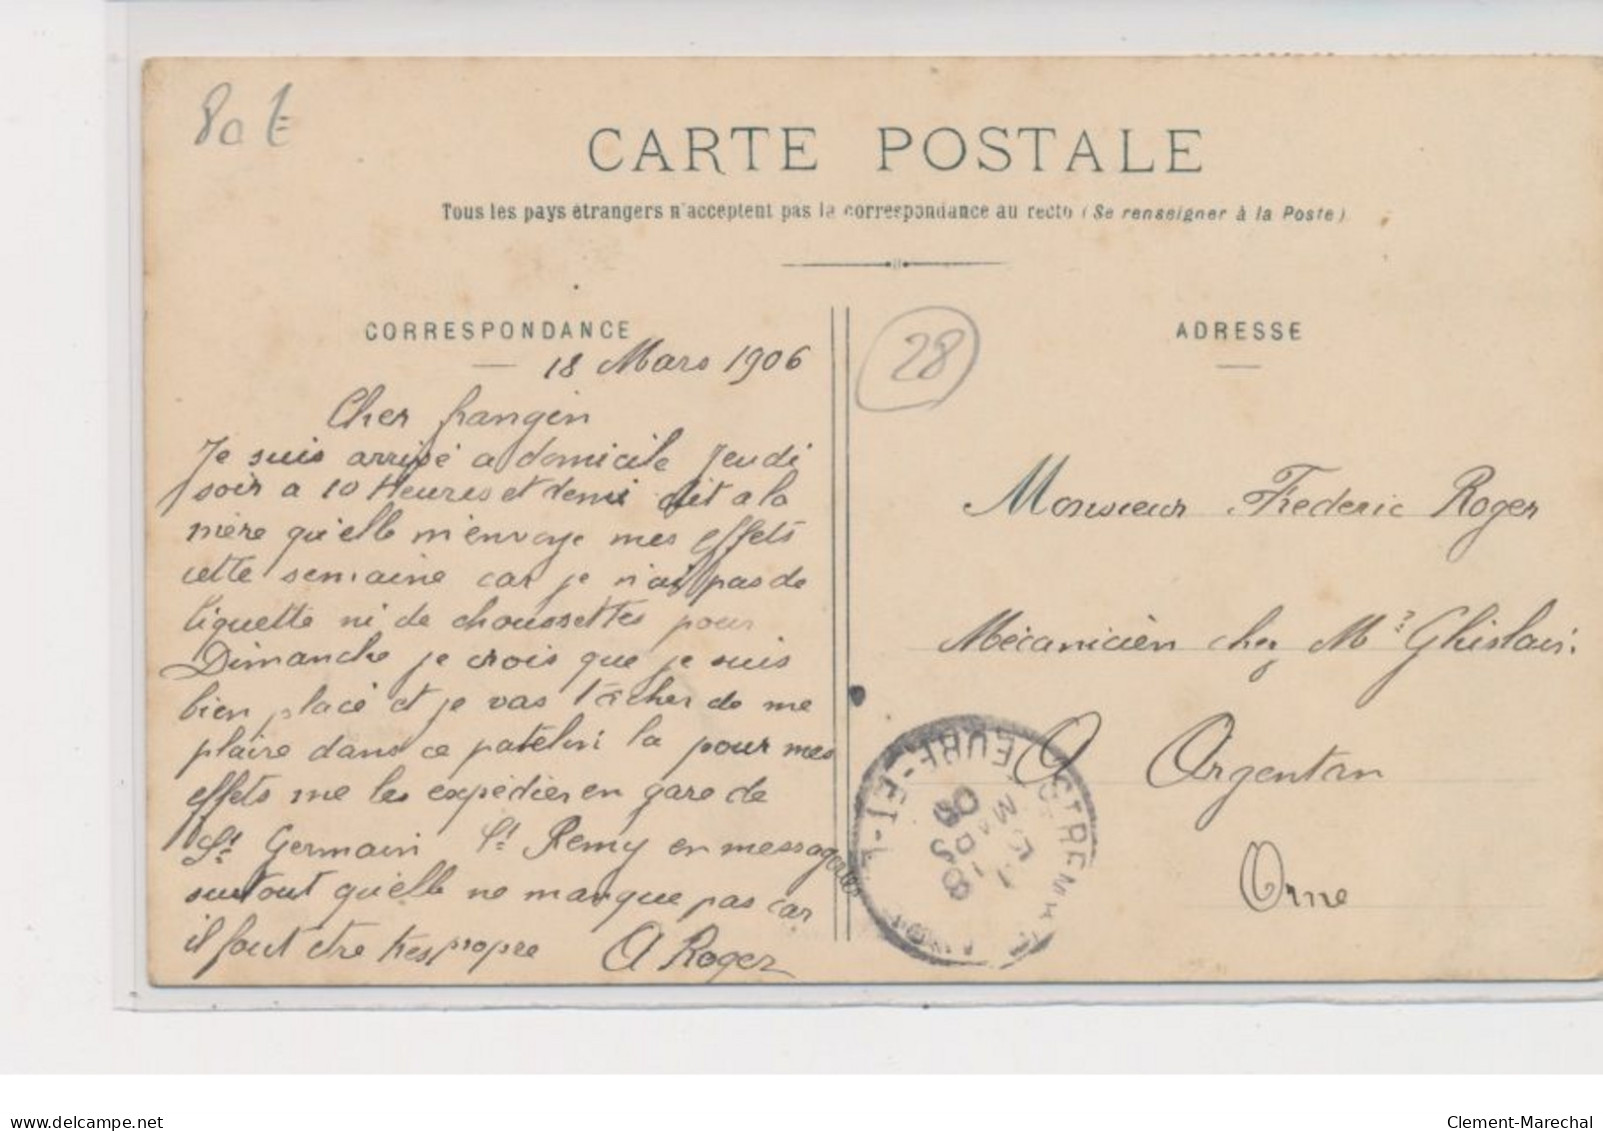 80 E
CARTE POSTALE
Tous les pays étrangers n'acceptent pas la correspondance au recto (Se renseigner à la Poste)
CORRESPONDANCE
18 Mars 1906
Cher frangin
Je suis arrivé a domicile Jeudi
soir a 10 Heures et demi dit a la
mère qu'elle m'envoye mes effets
cette semaine car je n'ai pas de
liquette ni de choussettes pour
Dimanche je crois que je suis
bien placé et je vas tâcher de me
plaire dans ce patelin la pour mes
effets me les expédier en gare de
St Germain St Remy en messagerie
surtout qu'elle ne manque pas car
il faut etre tres propre A Roger
28
ADRESSE
Monsieur Frederic Roger
Mécanicièn chez Mr Ghislain
A Argentan
Orne
EURE-ET-
delcampe.net
Clement-Marechal